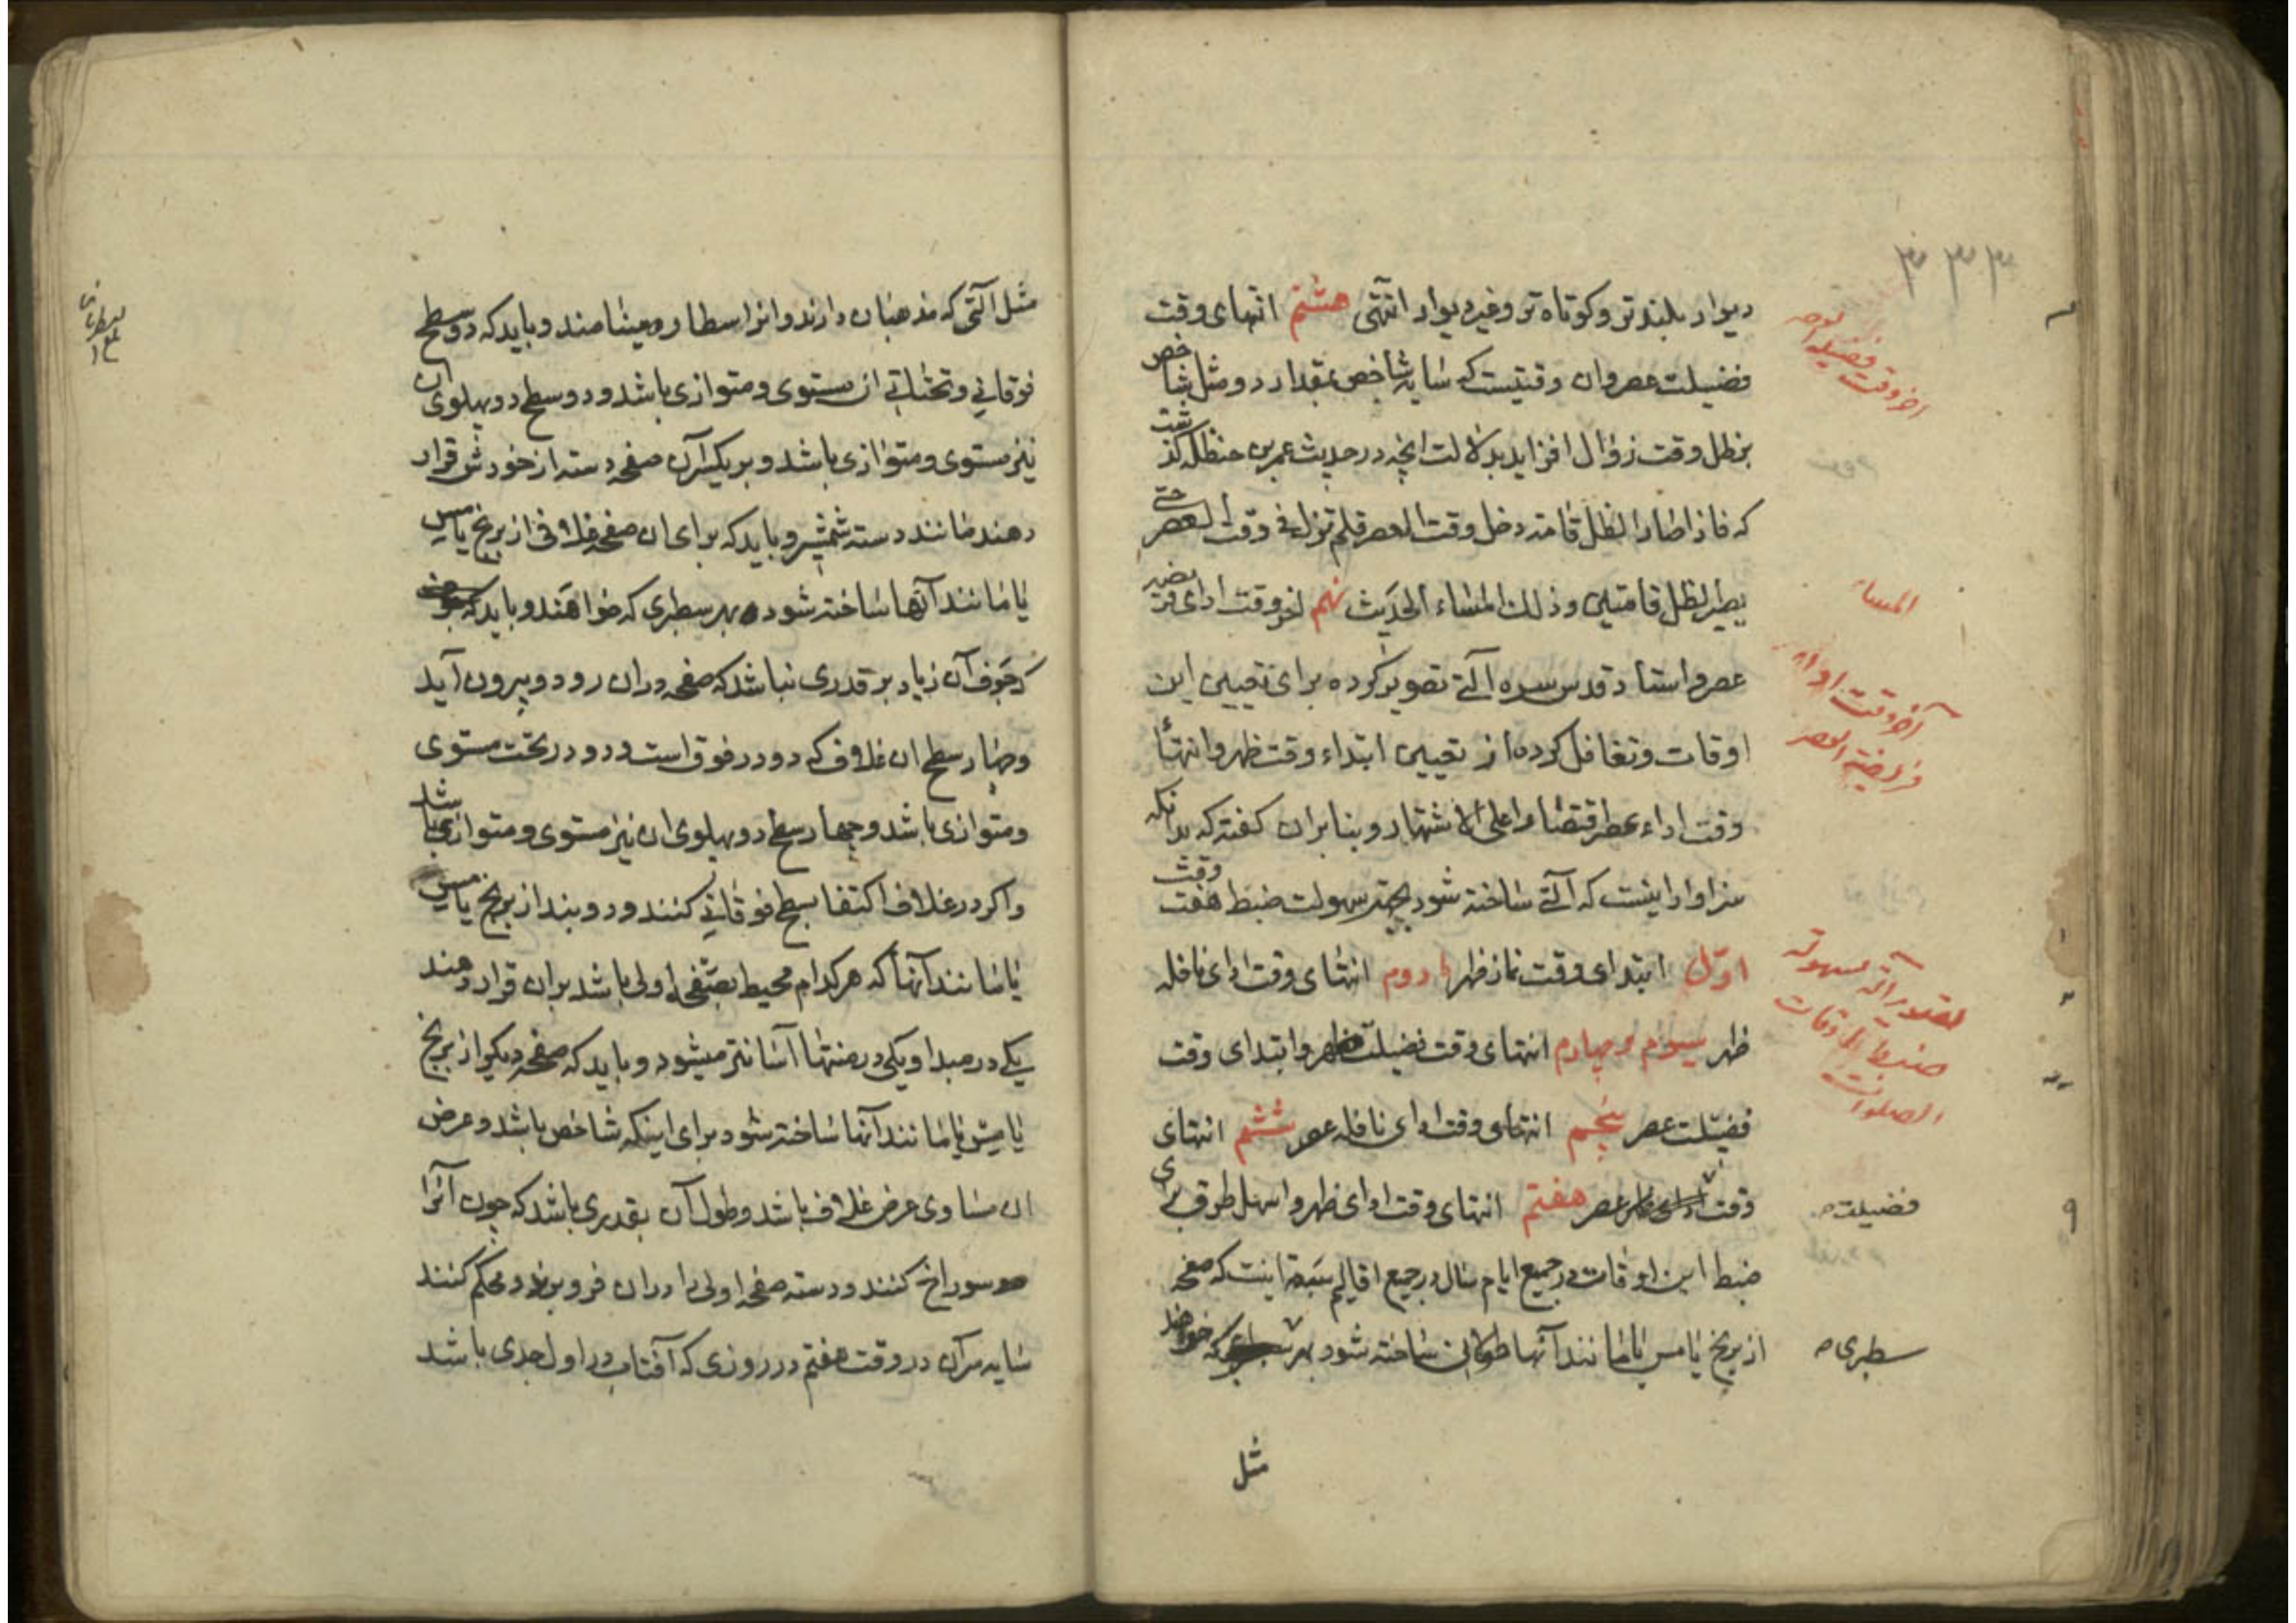 دیوار بلندتر و کوتاه تر و غیر دیوار انتهی هشتم انتهای وقت
فضیلت عصر و ان وقتیست که سایه شاخص بمقدار دو مثل شاخص
بر ظل وقت زوال افزاید بدلالت انچه در حدیث عمر بن حنظله گذشت
که فاذا صار الظل قامة دخل وقت العصر فلم تزل فی وقت العصر حتی
یصیر الظل قامتین و ذلك المساء الحدیث نهم اخر وقت ادای فریضه
عصر و استاد قدس سره آلتی تصویر کرده برای تعیین این
اوقات و تغافل کرده از تعیین ابتداء وقت ظهر و انتهاء
وقت اداء عصر اقتصارا علی الاشتهار و بنا بران گفته که بدانکه
سزاوار اینست که آلتی ساخته شود بجهة سهولت ضبط هفت وقت
اوّل ابتدای وقت نماز ظهر دوم انتهای وقت ادای نافله
ظهر سیوم و چهارم انتهای وقت فضیلت ظهر و ابتدای وقت
فضیلت عصر پنجم انتهای وقت ادای نافله عصر ششم انتهای
وقت عصر هفتم انتهای وقت ادای ظهر و اسهل طرق برای
ضبط این اوقات در جمیع ایام سال در جمیع اقالیم سبعة اینست که صفحه
از برنج یا مس یا مانند آنها طولانی ساخته شود بهر که خواهند
مثل
۳۳۳
اخر وقت فضیلة العصر
المساء
آخر وقت اداء
فریضة العصر
تصویر آلة سهولة
ضبط اوقات
الصلوات
فضیلت
سطبری
مثل آلتی که مذهبان دارند و انرا سطاره مینامند و باید که دو سطح
فوقانی و تحتانی ان مستوی و متوازی باشد و دو سطح دو پهلوی ان
نیز مستوی و متوازی باشد و بر یکسر آن صفحه دسته از خودش قرار
دهند مانند دسته شمشیر و باید که برای ان صفحه غلافی از برنج یا مس
یا مانند آنها ساخته شود بهر سطبری که خواهند و باید که
که جوف آن زیاد بر قدری نباشد که صفحه دران رود و بیرون آید
و چهار سطح ان غلاف که دو در فوق است و دو در تحت مستوی
و متوازی باشد و چهار سطح دو پهلوی ان نیز مستوی و متوازی باشد
و اگر در غلاف اکتفا بسطح فوقانی کنند و دو بند از برنج یا مس
یا مانند آنها که هرکدام محیط بصفحه اولی باشد بران قرار دهند
یکی در مبدا و یکی در منتها آسانتر میشود و باید که صفحه دیگر از برنج
یا مس یا مانند آنها ساخته شود برای اینکه شاخص باشد و عرض
ان مساوی عرض غلاف باشد و طول آن بقدری باشد که چون آنرا
سوراخ کنند و دسته صفحه اولی را دران فرو برند و محکم کنند
سایه سر آن در وقت هفتم در روزی که آفتاب در اول جدی باشد